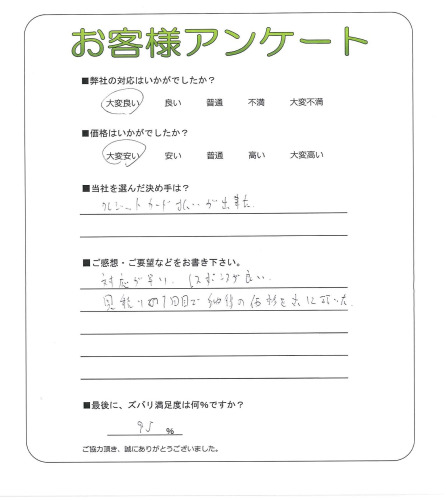 お客様アンケート
■弊社の対応はいかがでしたか？
大変良い 良い 普通 不満 大変不満
■価格はいかがでしたか？
大変安い 安い 普通 高い 大変高い
■当社を選んだ決め手は？
クレジットカード払いが出来た
■ご感想・ご要望などをお書き下さい。
対応が早い、レスポンスが良い
見積りの1回目で納得の価格を出して
■最後に、ズバリ満足度は何％ですか？
95 ％
ご協力頂き、誠にありがとうございました。